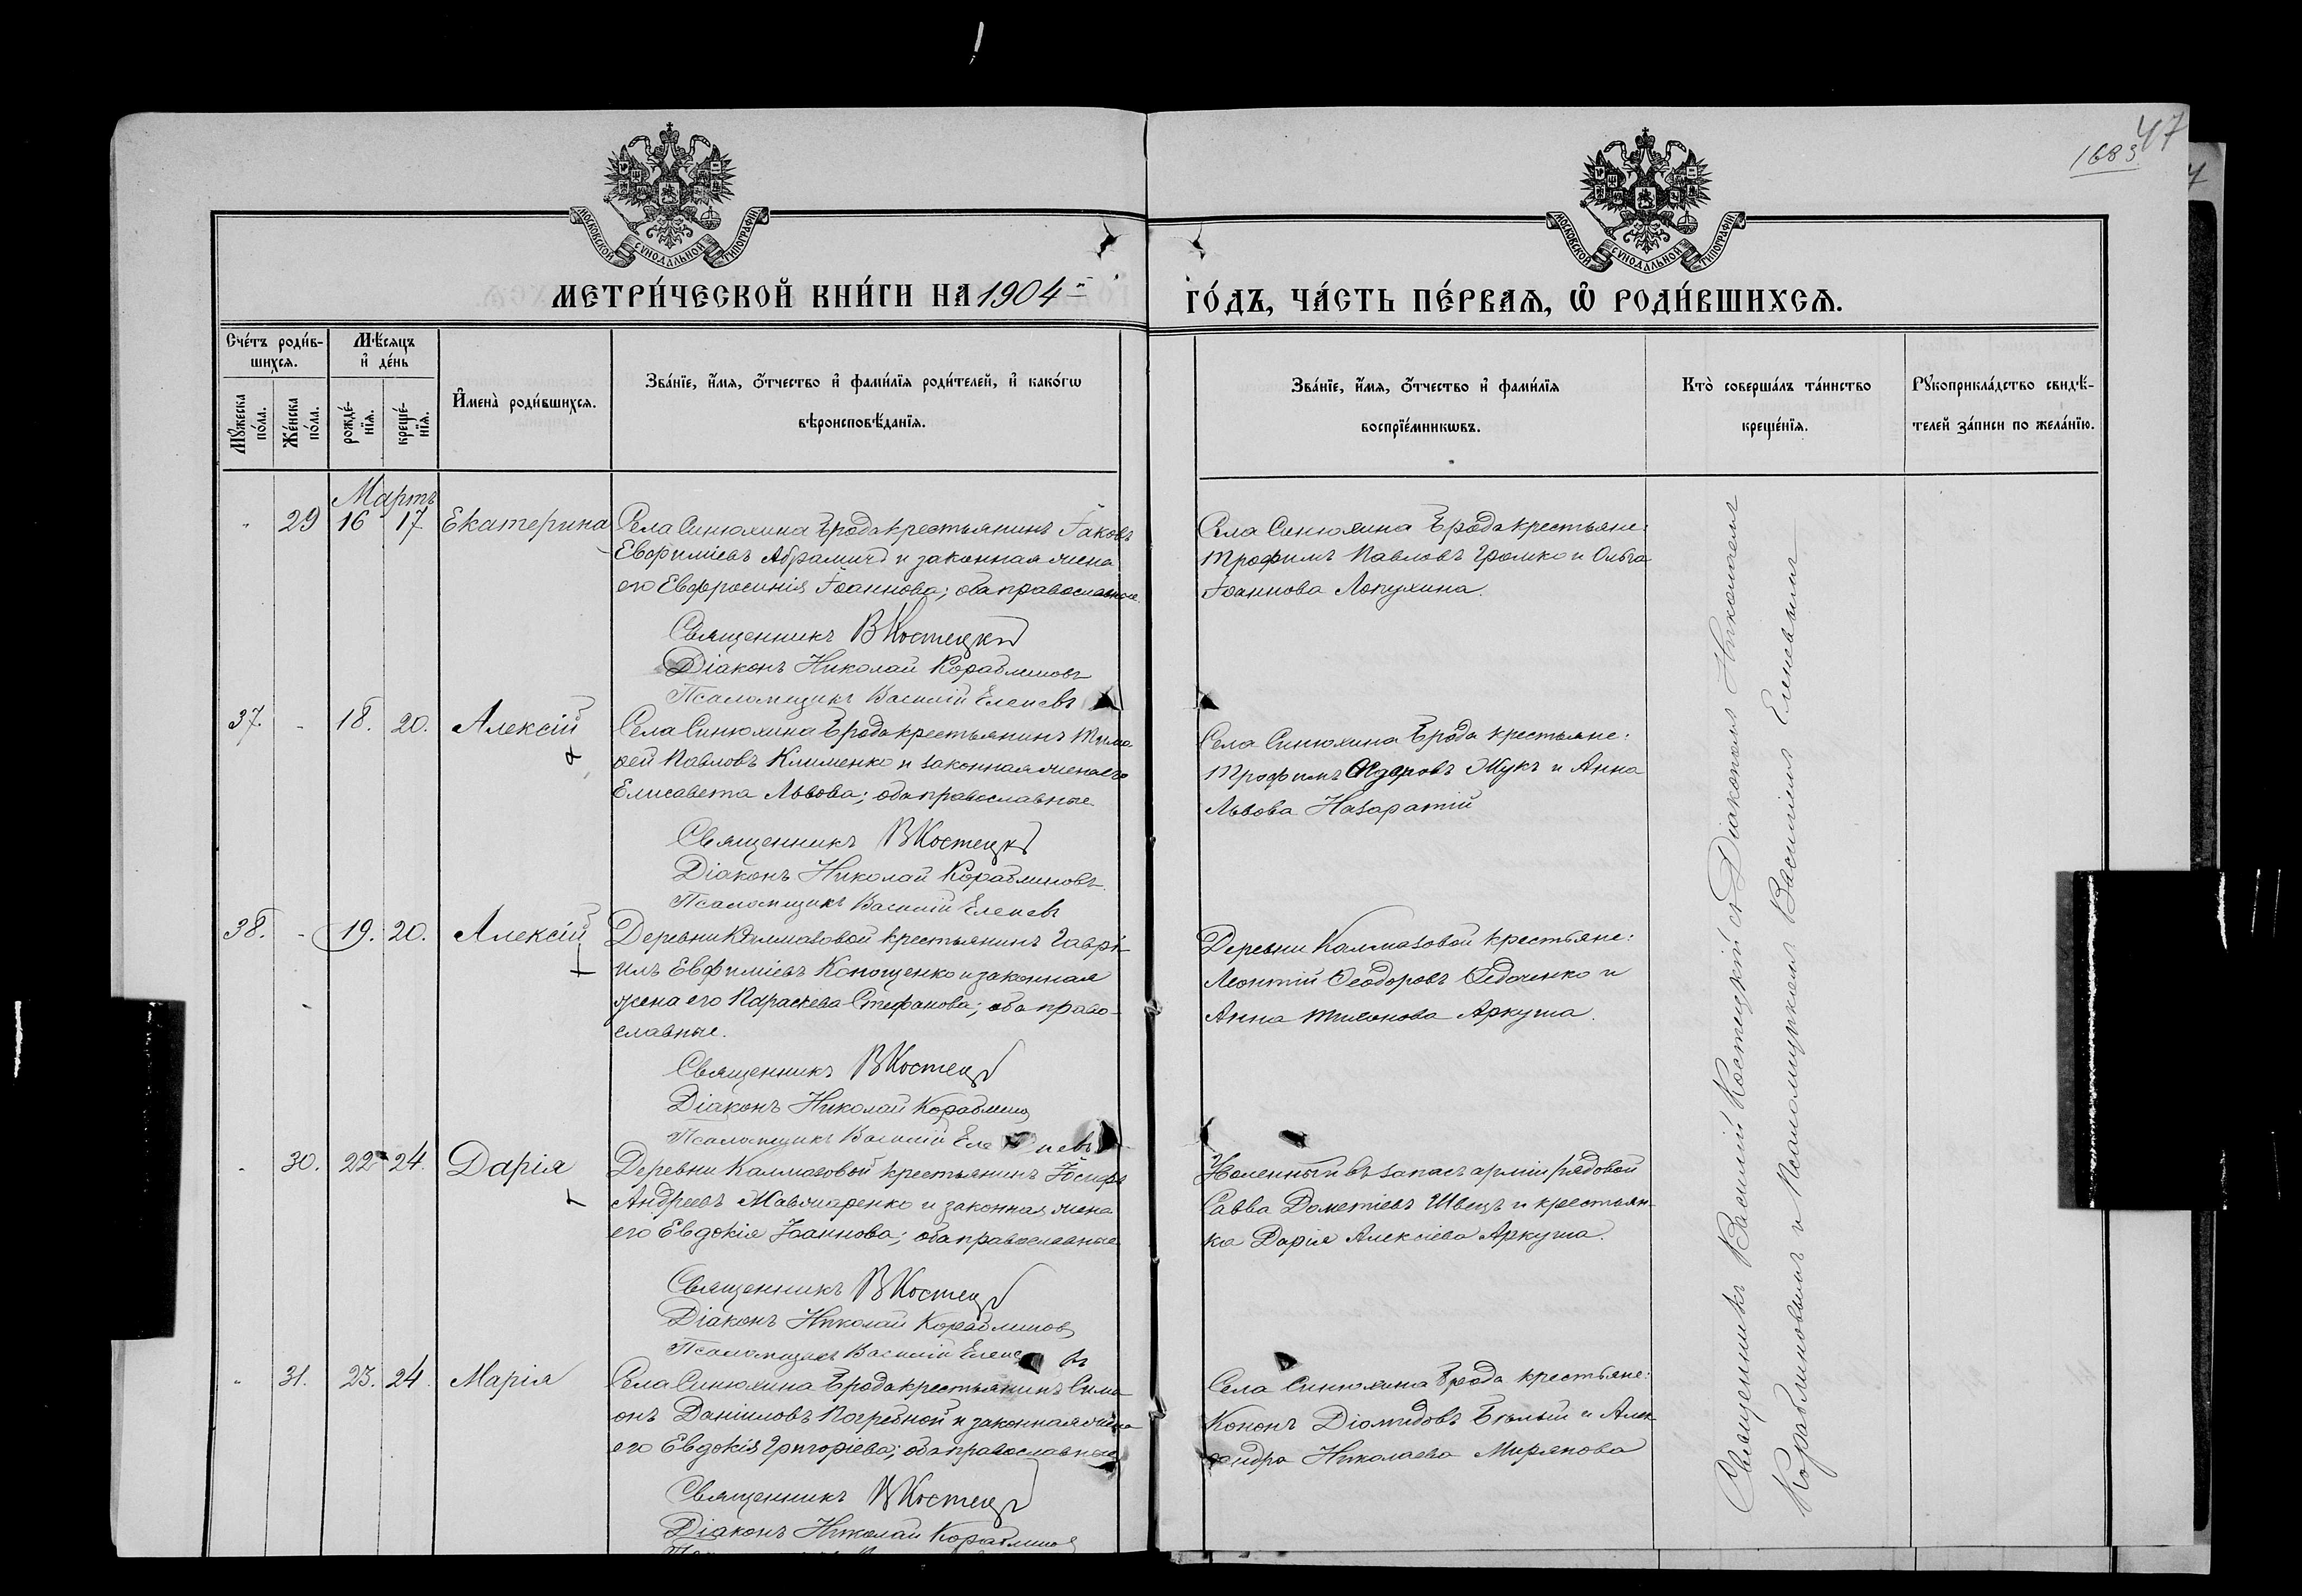 47
1683
МОСКОВСКОЙ СѴНОДАЛЬНОЙ ТИПОГРАФІИ
МОСКОВСКОЙ СѴНОДАЛЬНОЙ ТИПОГРАФІИ
МЕТРИ́ЧЕСКОЙ КНИ́ГИ НА 1904 й
ГО́ДЪ, ЧА́СТЬ ПЕ́РВАѦ, Ѡ҆ РОДИ́ВШИХСѦ.
Сче́тъ роди́в-
шихсѧ.
Мꙋ́жеска по́ла.
Же́нска по́ла.
Мѣ́сѧцъ и҆ де́нь
рожде́-
нїѧ.
креще́-
нїѧ.
И҆мена̀ роди́вшихсѧ.
Зва́нїе, и҆́мѧ, ѻ҆́тчество и҆ фами́лїѧ роди́телей, и҆ како́гѡ
вѣроисповѣ́данїѧ.
Зва́нїе, и҆́мѧ, ѻ҆́тчество и҆ фами́лїѧ
воспрїе́мникѡвъ.
Кто̀ соверша́лъ та́инство
креще́нїѧ.
Рꙋкоприкла́дство свидѣ́-
телей за́писи по жела́нїю.
Мартъ
29 16 17 Екатерина
Села Синюхина Брода крестьянинъ Іаковъ
Евфиміевъ Абрамичъ и законная жена
его Евфросинія Іоаннова; оба православные.
Священникъ В Костецкій
Діаконъ Николай Кораблиновъ
Псаломщикъ Василій Еленевъ
Села Синюхина Брода крестьяне:
Трофимъ Павловъ Громко и Ольга
Іоаннова Лопухина.
37. - 18. 20. Алексій
Села Синюхина Брода крестьянинъ Тимо
фей Павловъ Клименко и законная жена его
Елисавета Львова; оба православные
Священникъ В Костецкій
Діаконъ Николай Кораблиновъ
Псаломщикъ Василій Еленевъ
Села Синюхина Брода крестьяне:
Трофимъ Жукъ и Анна
Львова Назаратій
38. - 19. 20. Алексій
Деревни Калмазовой крестьянинъ Гаврі-
илъ Евфиміевъ Конощенко и законная
жена его Параскева Стефанова; оба право-
славные.
Священникъ В Костецкій
Діаконъ Николай Кораблинов
Псаломщикъ Василій Еленевъ
Деревни Калмазовой крестьяне:
Леонтій Ѳеодоровъ Ѳедоченко и
Анна Тихонова Аркуша.
30. 22 24. Дарія
Деревни Калмазовой крестьянинъ Іосифъ
Андреевъ Жавжаренко и законная жена
его Евдокія Іоаннова; оба православные
Священникъ В Костецкій
Діаконъ Николай Кораблинов
Псаломщикъ Василій Еленевъ
Уволенный въ запасъ арміи рядовой
Савва Дометіевъ Швецъ и крестьян-
ка Дарія Алексіева Аркуша.
31. 23. 24. Марія
Села Синюхина Брода крестьянинъ Симе
онъ Даниловъ Погребной и законная жена
его Евдокія Григоріева; оба православные
Священникъ В Костецкій
Діаконъ Николай Кораблинов
Села Синюхина Брода крестьяне:
Кононъ Діомидовъ Бѣлый и Алек
сандра Николаева Мирянова
Священникъ Василій Костецкій съ Діакономъ Николаемъ
Кораблиновымъ и Псаломщикомъ Василіемъ Еленевымъ